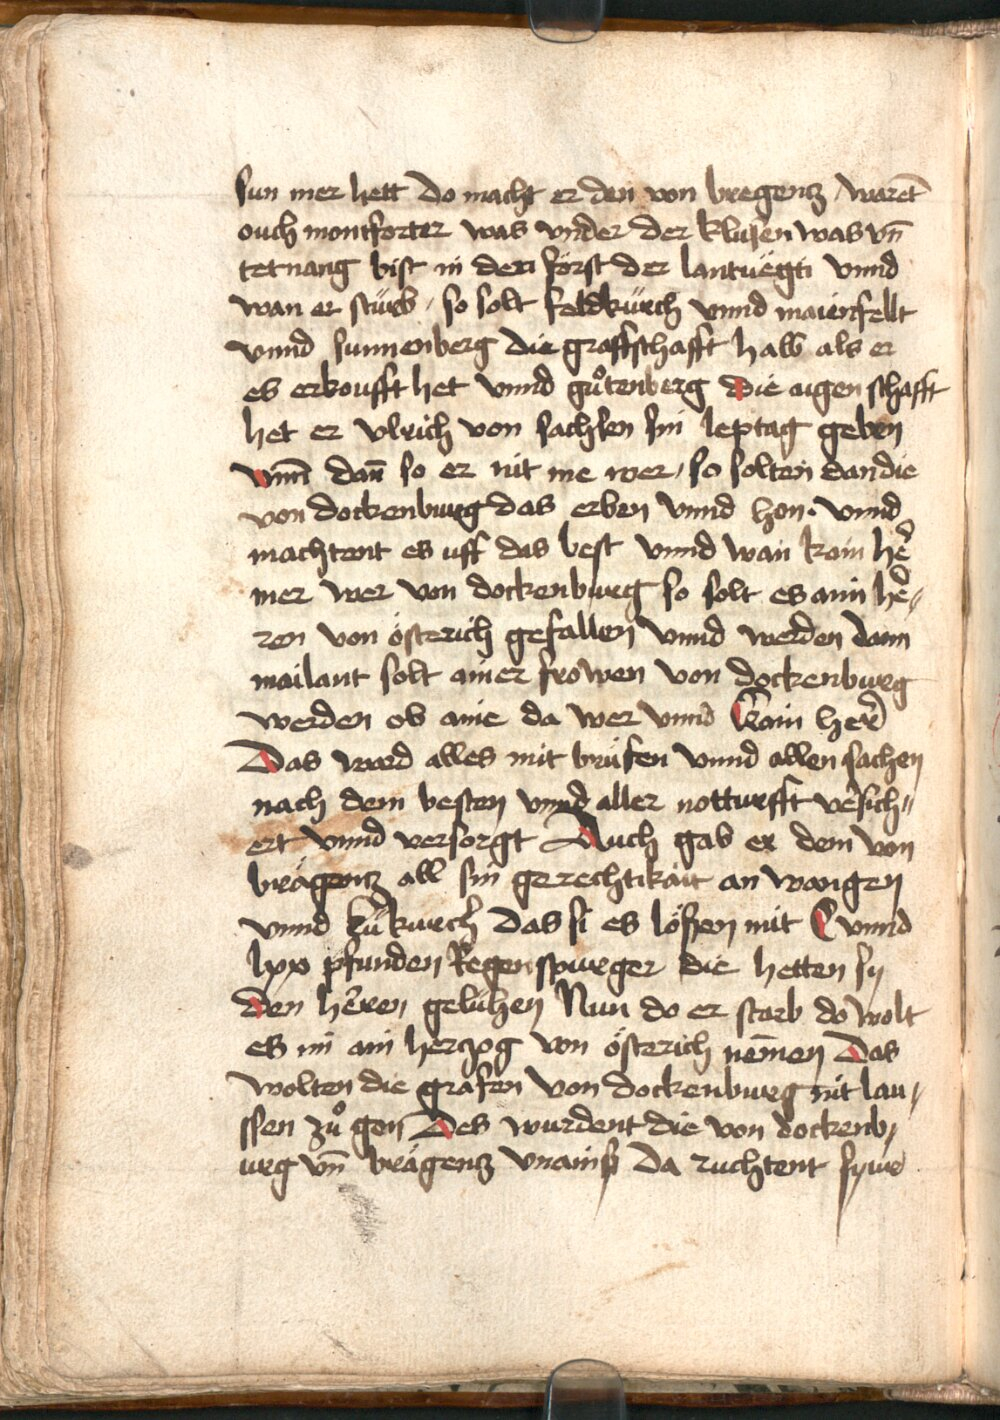 sun mer hett do macht er den von bregentz / waret̄
ouch montforter was vnder der klusen was vn̄
tetnang bist in den forst der lantuegti vnnd
wan er sturb / so solt feldkurch vnnd maienfellt
vnnd sunnenberg die graffschafft halb als er
es erkoufft het vnnd gůtenberg die aigen schafft
het er vlrich von sachsen sin leptag geben
vnn̄ dan̄ so er nit me wer / so solten dan die
von dockenburg das erben vnnd hon · vnnd
machtent es uff das best vnnd wan kain he᷑
mer wer von dockenburg so solt es ain he᷑/
ren von österich gefallen vnnd werden dann
mailant solt ainer frowen von dockenburg
werden ob anie da wer vnnd kain her᷑
Das ward alles mit briefen vnnd allen sachen
nach dem besten vnnd aller notturfft ve᷑sich//
ert vnnd versorgt Auch gab er dem von
brägentz all sin gerechtikait an wangen
vnnd lükurch das si es lössen mit C vnnd
lxx pfunden Regenspurger die hetten sy
den he᷑ren geluhen Nun do er starb do wolt
es im ain herczog von österich nem̄en Das
wolten die grafen von dockenburg nit lau/
ssen zů gon Des wurdent die von dockenb/
urg vn̄ brägentz vnains Da ruchtent sy